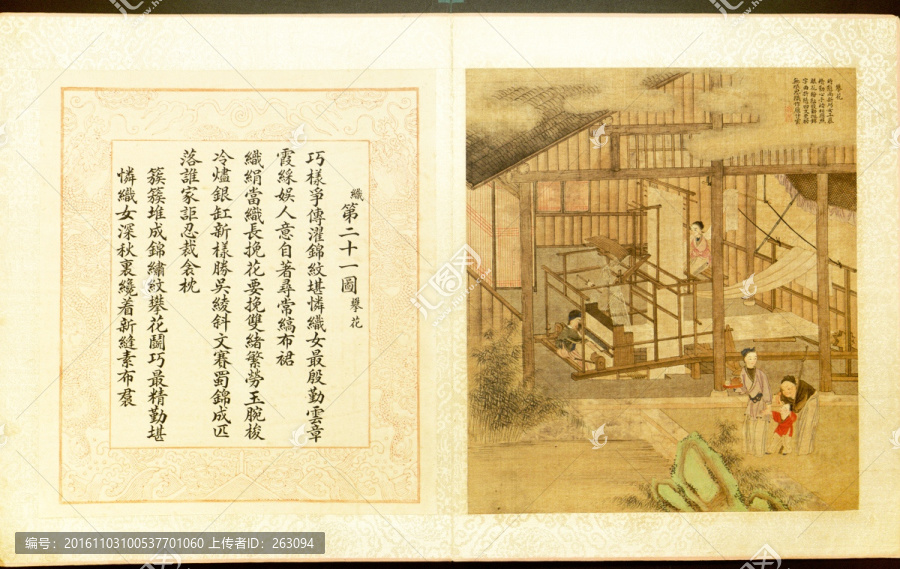 織第二十一圖攀花
巧樣爭傳濯錦紋堪憐織女最殷勤雲章
霞綵娛人意自著尋常縞布裙
織絹當織長挽花要挽雙緒繁勞玉腕梭
冷燼銀缸新樣勝吳綾斜文賽蜀錦成匹
落誰家詎忍裁衾枕
簇簇堆成錦繡紋攀花鬪巧最精勤堪
憐織女深秋裏纔着新縫素布裠
攀花
编号：20161103100537701060 上传者ID：263094